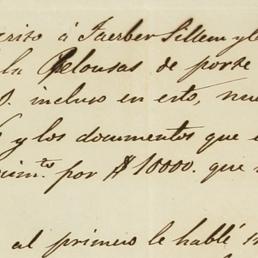 á Faerber Sillem y l
la Pelousas de porte
D. incluso en esto, nue
y los documentos que e
uim.tos por $10000. que
al primero le hablé